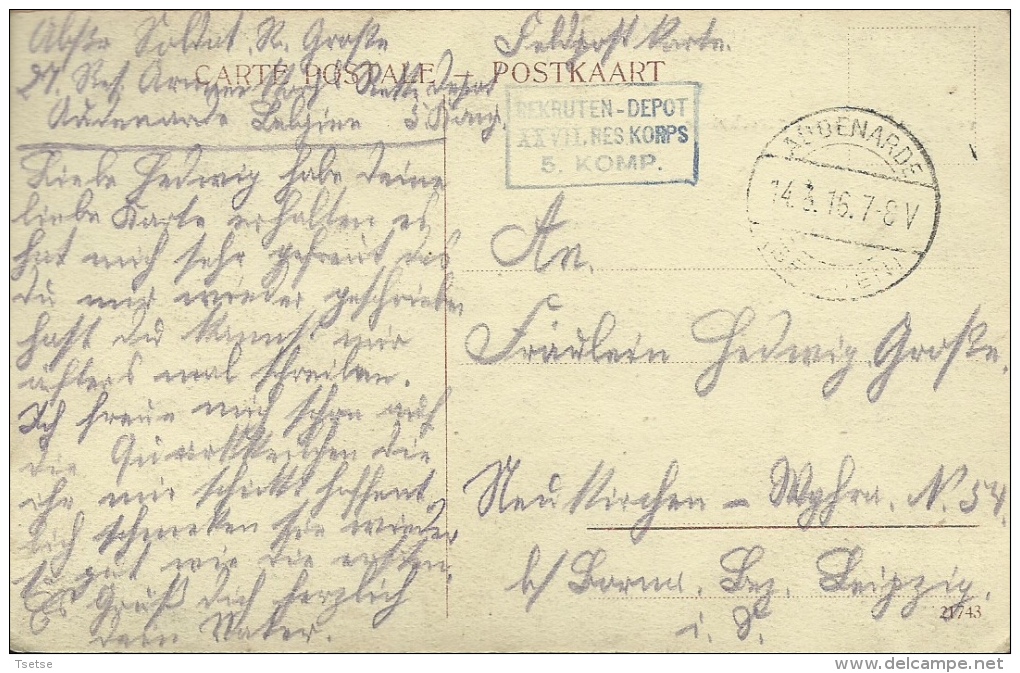 Abstr. Soldat. R. Große
Feldpost Karte.
CARTE POSTALE – POSTKAART
27. Res. Armee Korps Rekt. Depot
Audenarde Belgien 5 Komp.
REKRUTEN-DEPOT
XXVII. RES. KORPS
5. KOMP.
AUDENARDE
14.3.16. 7-8 V
Liebe Hedwig habe deine
liebe Karte erhalten es
hat mich sehr gefreut das
du mir wieder geschrieben
hast du kannst mir
öfters mal schreiben.
Ich freue mich schon auf
die Quarkkeulchen die
ihr mir schickt hoffent
lich schmeken sie wieder
so gut wie die ersten.
Es Grüßt dich herzlich
dein Vater.
An.
Fräulein Hedwig Große.
Neukirchen – Wyhra. N. 54.
b/ Borna. Bez. Leipzig.
i. S.
21743
Tsetse
http://www.delcampe.net